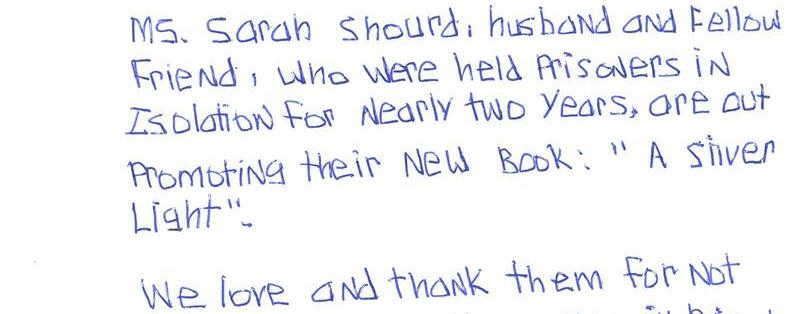 Ms. Sarah Shourd, husband and Fellow
Friend, who were held Prisoners in
Isolation For Nearly two years, are out
Promoting their New Book: " A Sliver
Light".
We love and thank them for Not